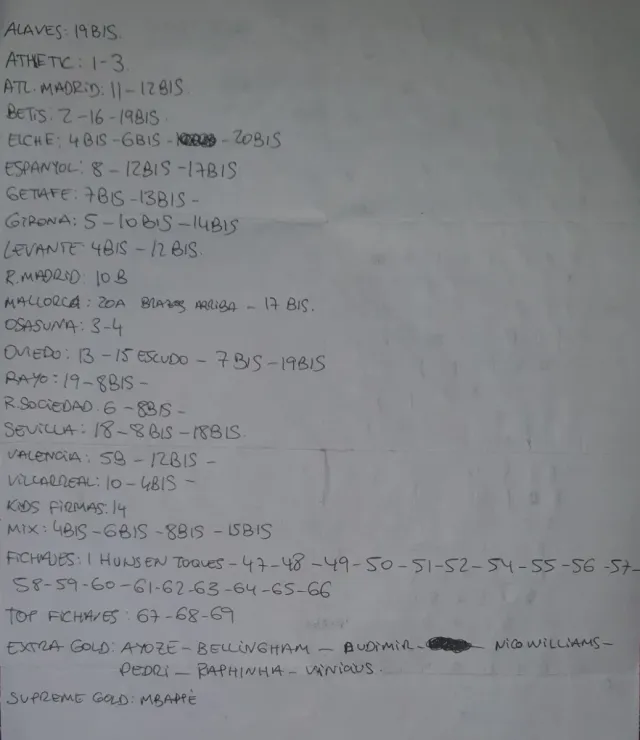 ALAVES: 19BIS.
ATHETIC: 1-3
ATL. MADRID: 11-12BIS
BETIS: 2-16-19BIS
ELCHE: 4BIS-6BIS - - 20BIS
ESPANYOL: 8-12BIS-17BIS
GETAFE: 7BIS-13BIS-
GIRONA: 5-10BIS-14BIS
LEVANTE 4BIS-12BIS.
R.MADRID: 10B
MALLORCA: 20A BRAZOS ARRIBA - 17 BIS.
OSASUNA: 3-4
OVIEDO: 13-15 ESCUDO - 7BIS-19BIS
RAYO: 19-8BIS-
R.SOCIEDAD. 6-8BIS-
SEVILLA: 18-8BIS-18BIS.
VALENCIA: 5B-12BIS-
VILLARREAL: 10-4BIS-
KIDS FIRMAS: 14
MIX: 4BIS-6BIS-8BIS-15BIS
FICHAJES: 1 HUNSEN TOQUES-47-48-49-50-51-52-54-55-56-57-
58-59-60-61-62-63-64-65-66
TOP FICHAJES: 67-68-69
EXTRA GOLD: AYOZE-BELLINGHAM-BUDIMIR- - NICO WILLIAMS-
PEDRI-RAPHINHA-VINICIUS.
SUPREME GOLD: MBAPPÈ